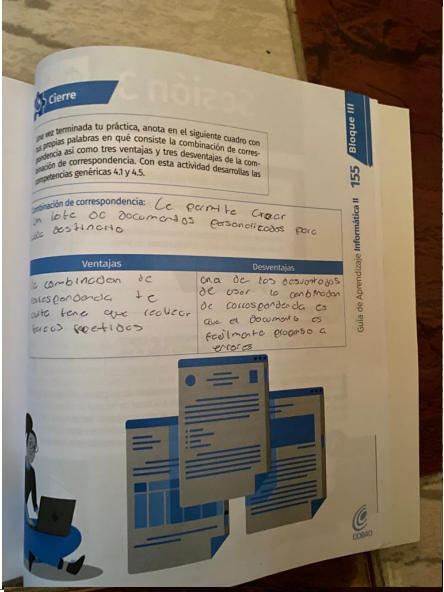 Cierre
Una vez terminada tu práctica, anota en el siguiente cuadro con
tus propias palabras en qué consiste la combinación de corres-
pondencia así como tres ventajas y tres desventajas de la com-
binación de correspondencia. Con esta actividad desarrollas las
competencias genéricas 4.1 y 4.5.
Combinación de correspondencia: Le permite crear
un lote de documentos personalizados para
cada destinario
Ventajas
la combinacion de
correspondencia te
evite tene que realizar
tareas repetidas
Desventajas
una de las desventajas
de usar la combinadon
de correspondencia es
que el documento es
facilmente propenso a
errores
Guía de Aprendizaje Informática II 155 Bloque III
COBAO